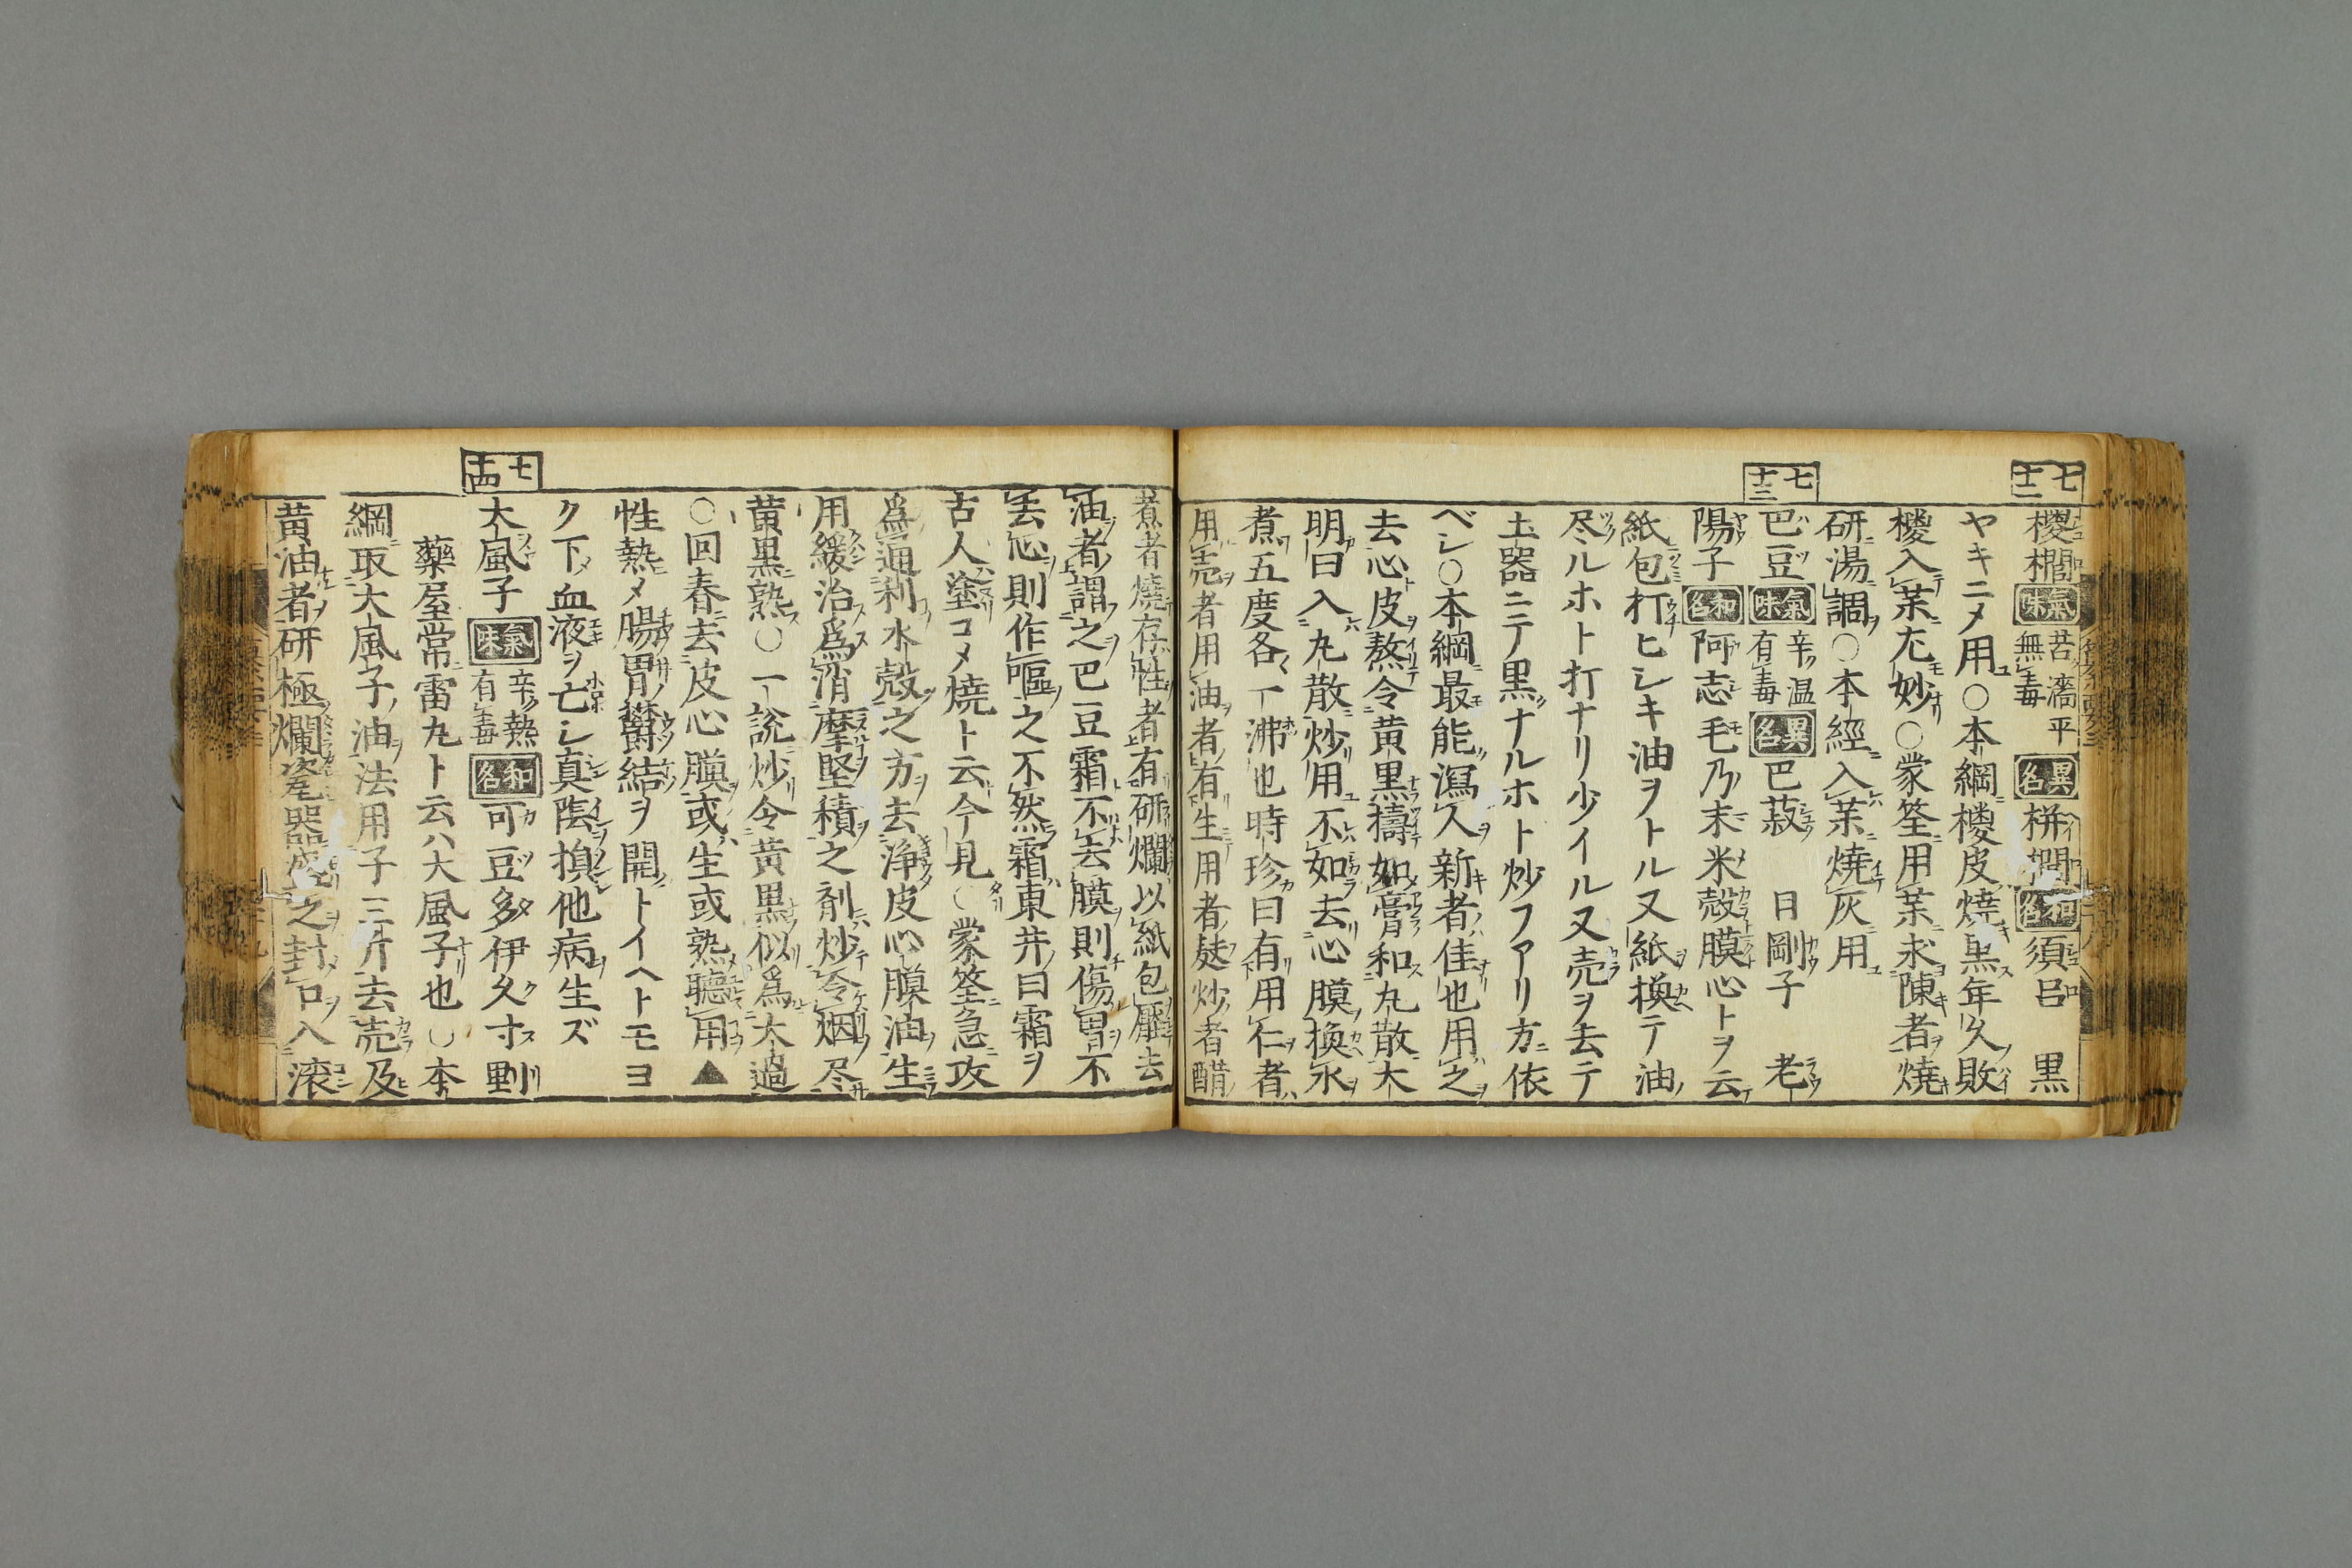 七十二
椶櫚 氣味 苦濇平無毒 異名 栟櫚 和名 須呂 黒
ヤキニメ用○本綱椶皮燒黒年久敗
椶入薬尤妙○蒙筌用薬求陳者燒
研湯調○本經入薬燒灰用
七十三
巴豆 氣味 辛温有毒 異名 巴菽 日剛子 老
陽子 和名 阿志毛乃 末米殻膜心トヲ云
紙包打ヒシキ油ヲトル又紙換テ油
尽ルホト打ナリ少イル又売ヲ去テ
土器ニテ黒ナルホト炒フアリ方依
ベシ○本綱最能瀉人新者佳也用之
去心皮熬令黄黒擣如膏和丸散大
明曰入丸散炒用不如去心膜換水
煮五度各一沸也時珍曰有用仁者
用売者用油者有生用者麸炒者醋
煮者燒存性者有研爛以紙包壓去
油者謂之巴豆霜不去膜則傷胃不
去心則作嘔之不然霜東井曰霜ヲ
古人塗コメ燒ト云今見○蒙筌急攻
為通利水穀之方去浄皮心膜油生
用緩治為消摩堅積之剤炒令烟尽
黄黒熟○一説炒令黄黒似為太過
○回春去皮心膜或生或熟聴用▲
性熱メ腸胃欝結ヲ開トイヘトモヨ
ク下メ血液ヲ亡シ真陰損他病生ズ
七十四
大風子 氣味 辛熱有毒 和名 可豆多伊久寸剛
藥屋常雷丸ト云ハ大風子也○本
綱取大風子油法用子三斤去売及
黄油者研極爛瓷器盛之封口入滚